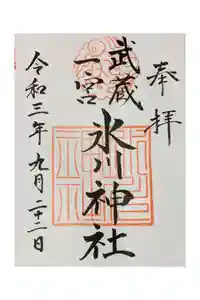 奉拝
武蔵
一宮
氷川神社
令和三年九月二十二日